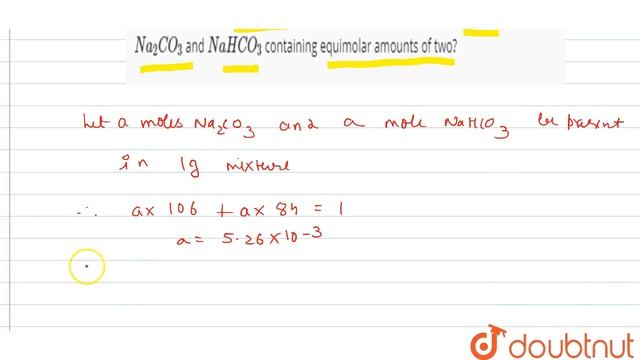 Na₂CO₃ and NaHCO₃ containing equimolar amounts of two?
Let a moles Na₂CO₃ and a mole NaHCO₃ be present
in 1g mixture
∴ a× 106 + a× 84 = 1
a = 5.26×10⁻³
doubtnut